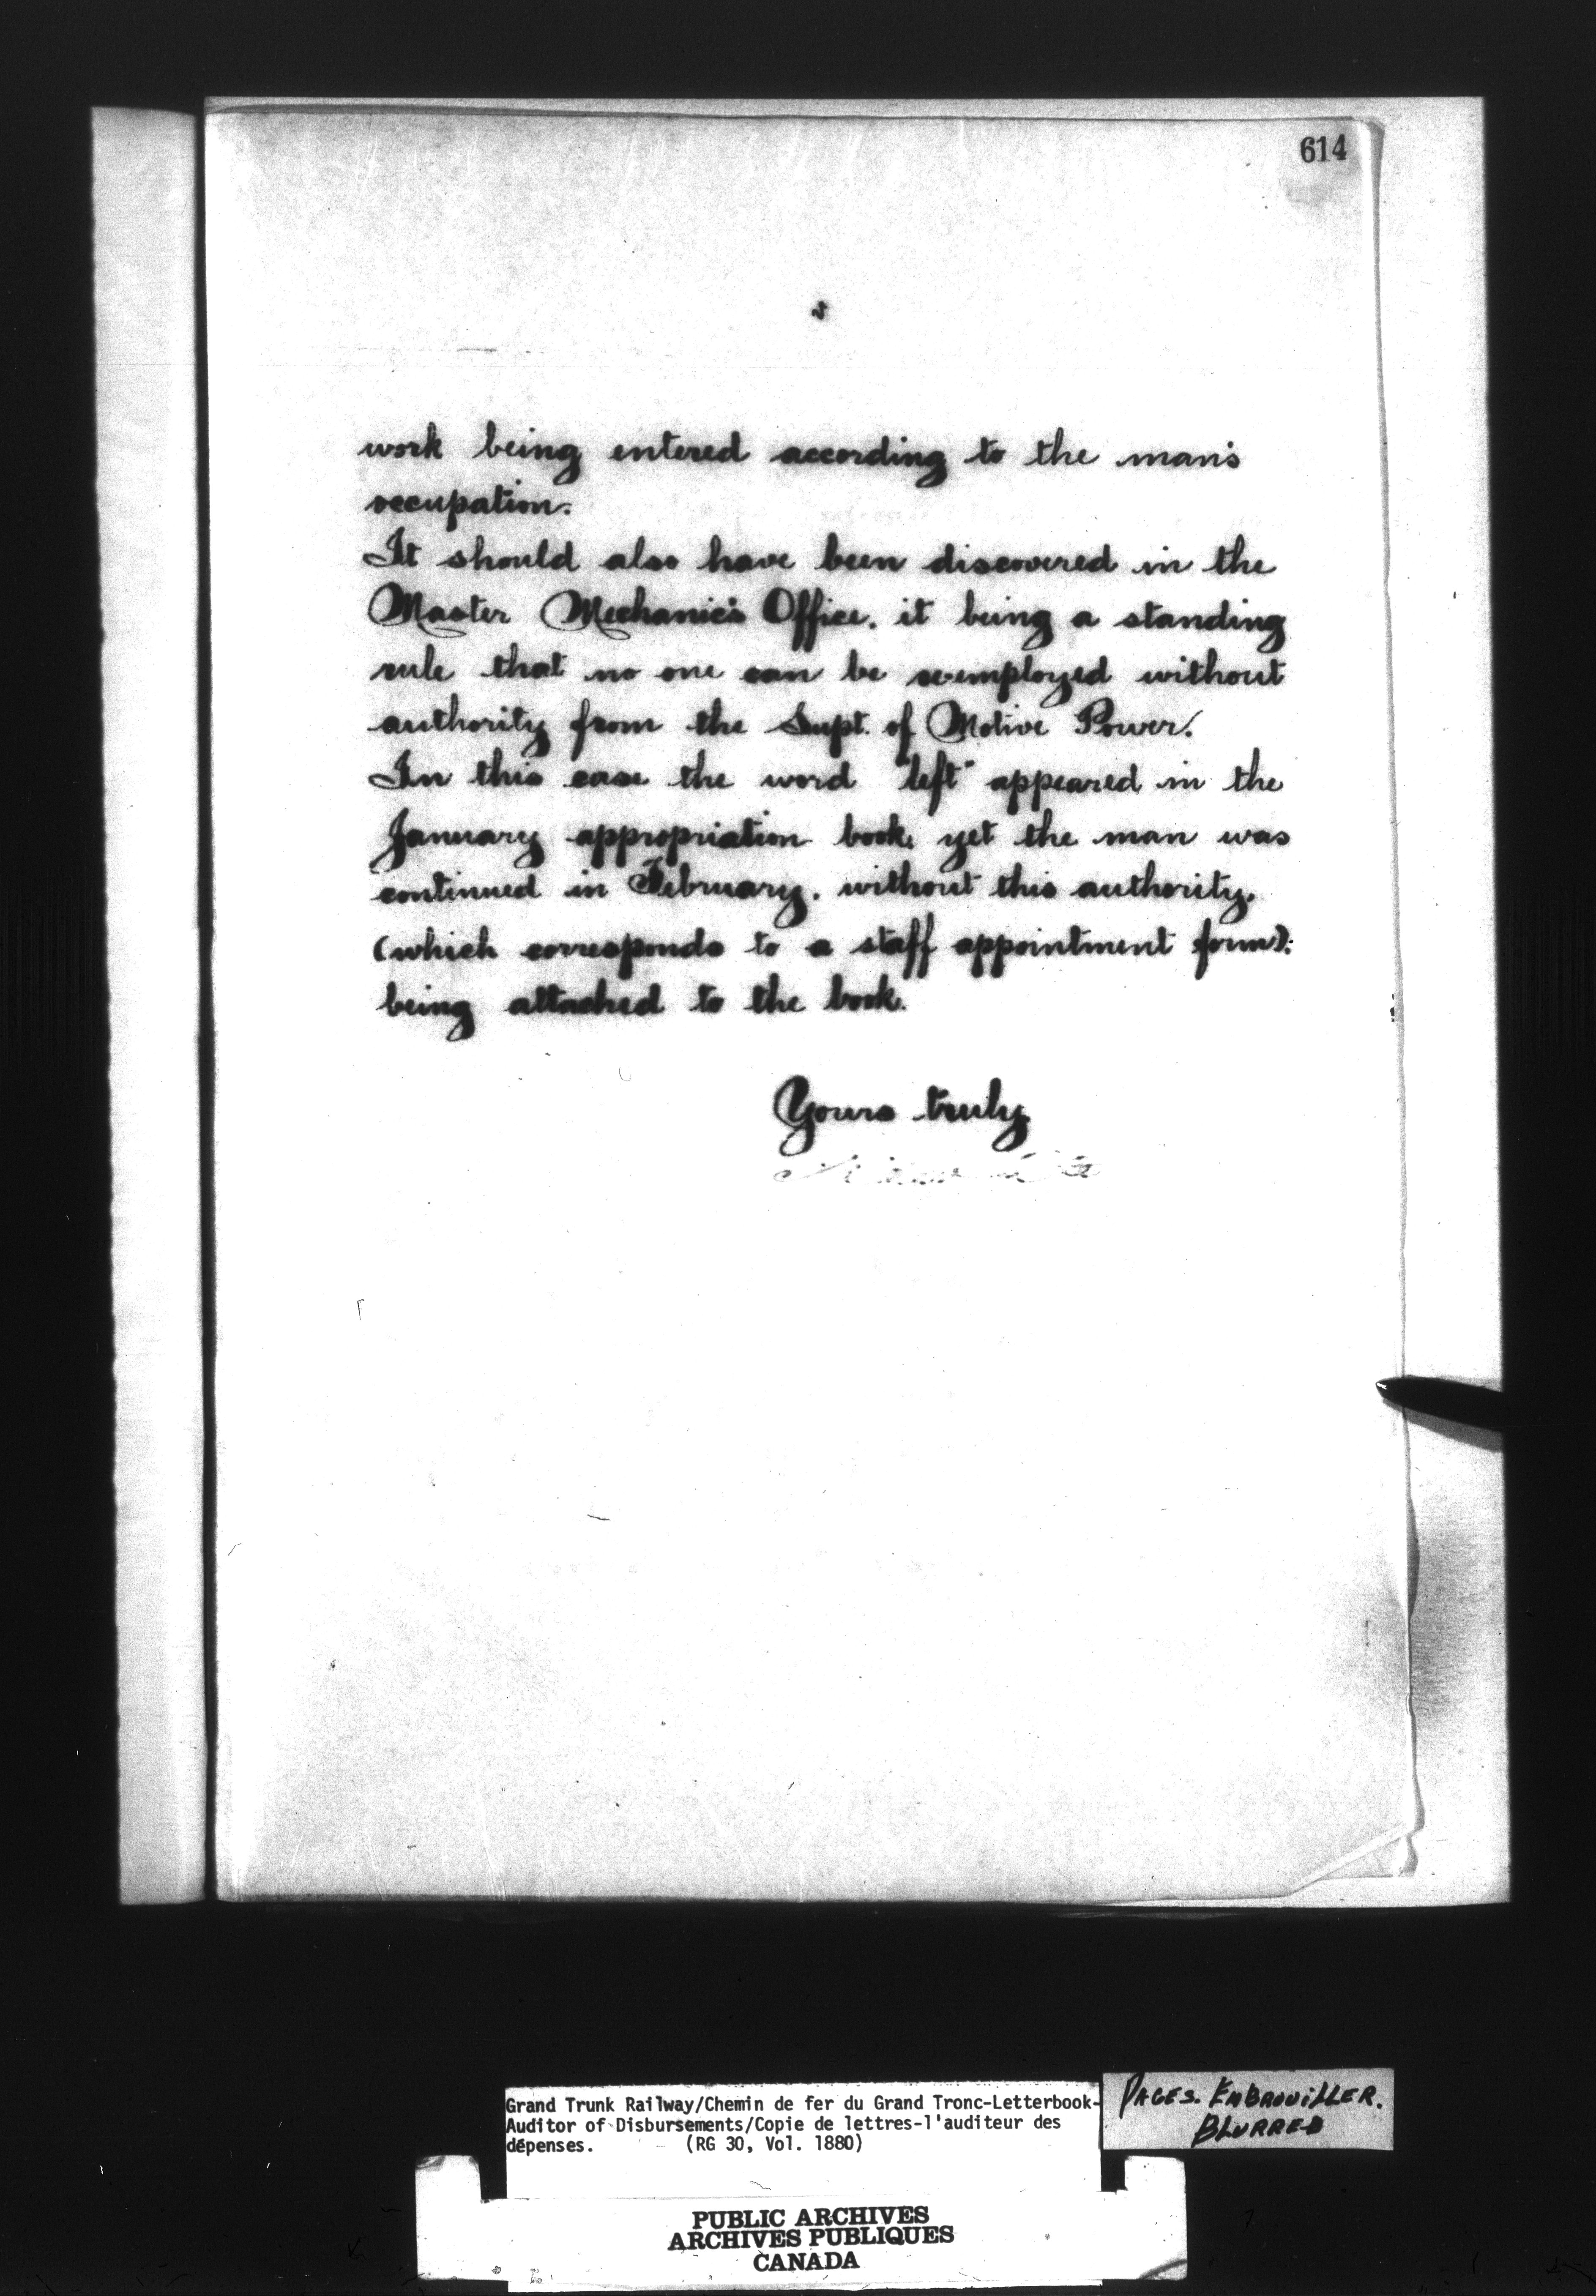 614
2
work being entered according to the man's
occupation.
It should also have been discovered in the
Master Mechanic's Office, it being a standing
rule that no one can be re-employed without
authority from the Supt. of Motive Power.
In this case the word "left" appeared in the
January appropriation book, yet the man was
continued in February, without this authority,
(which corresponds to a staff appointment form).
being attached to the book.
Yours truly
Grand Trunk Railway/Chemin de fer du Grand Tronc-Letterbook-
Auditor of Disbursements/Copie de lettres-l'auditeur des
dépenses. (RG 30, Vol. 1880)
PAGES. EMBROUILLER.
BLURRED
PUBLIC ARCHIVES
ARCHIVES PUBLIQUES
CANADA